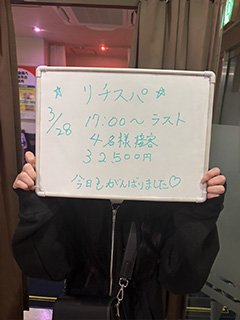 ☆ リチスパ ☆
3/28
17:00〜ラスト
4名様接客
32500円
今日もがんばりました♡